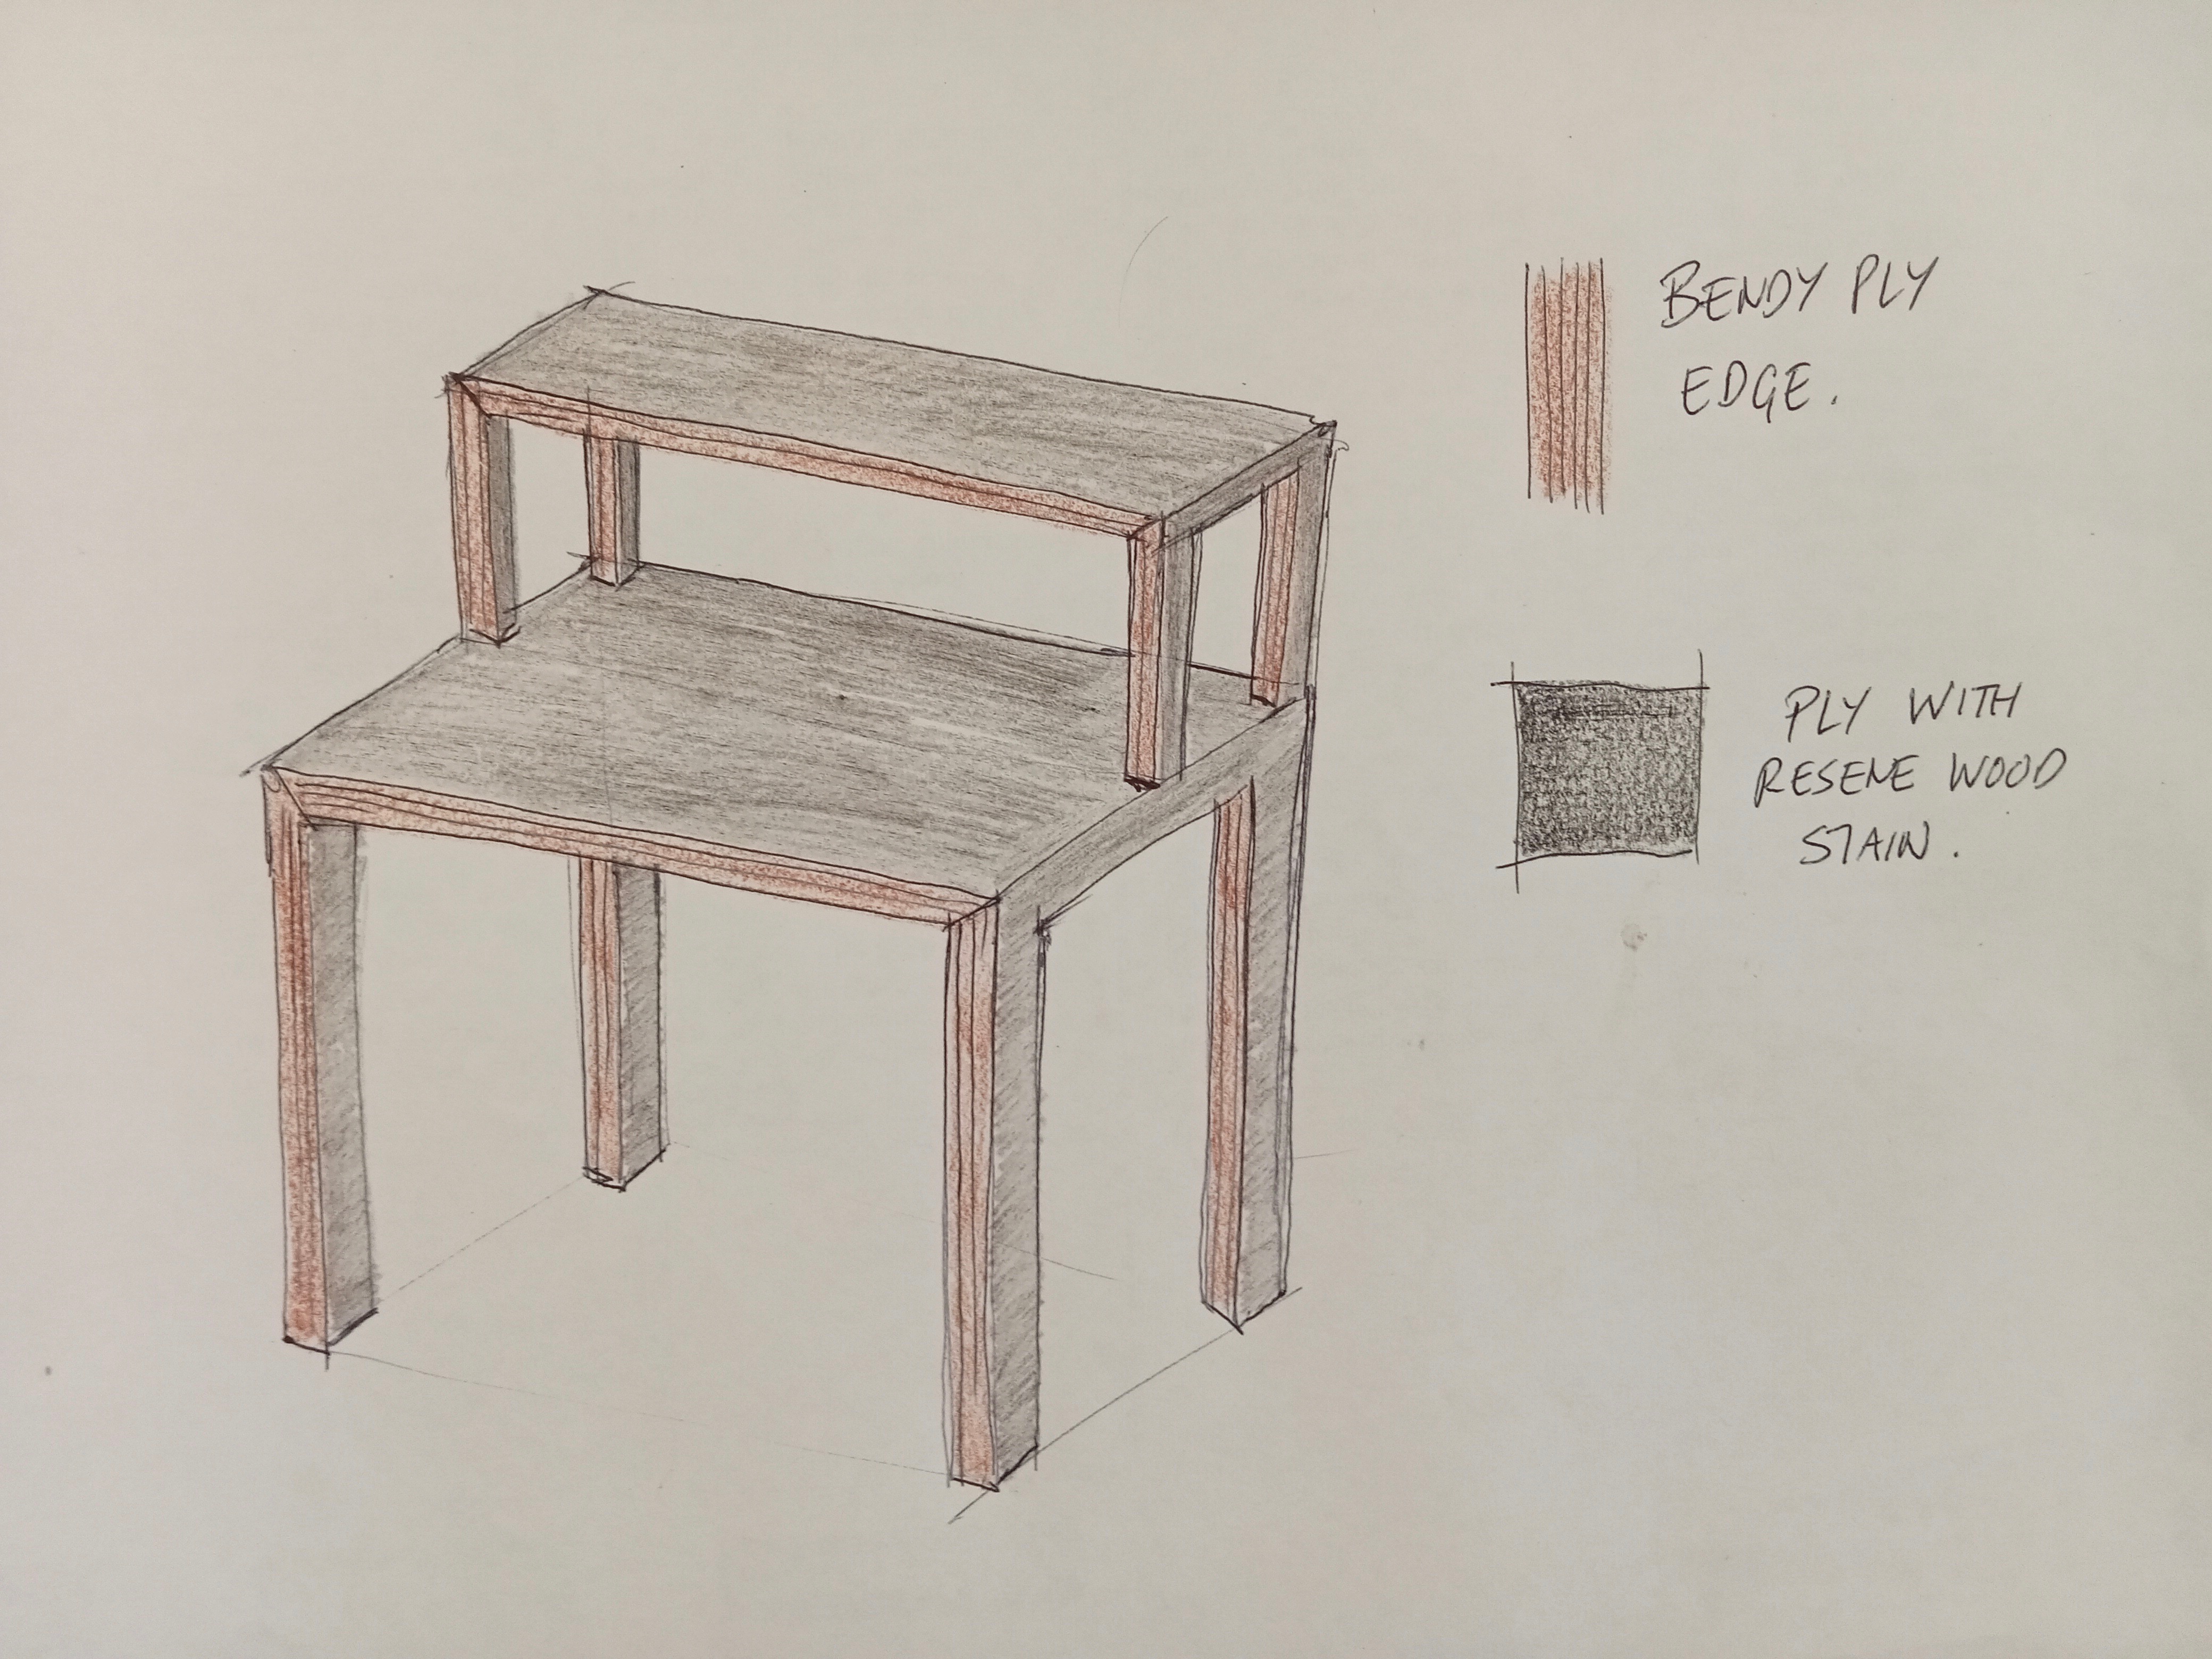 BENDY PLY
EDGE.
PLY WITH
RESENE WOOD
STAIN.